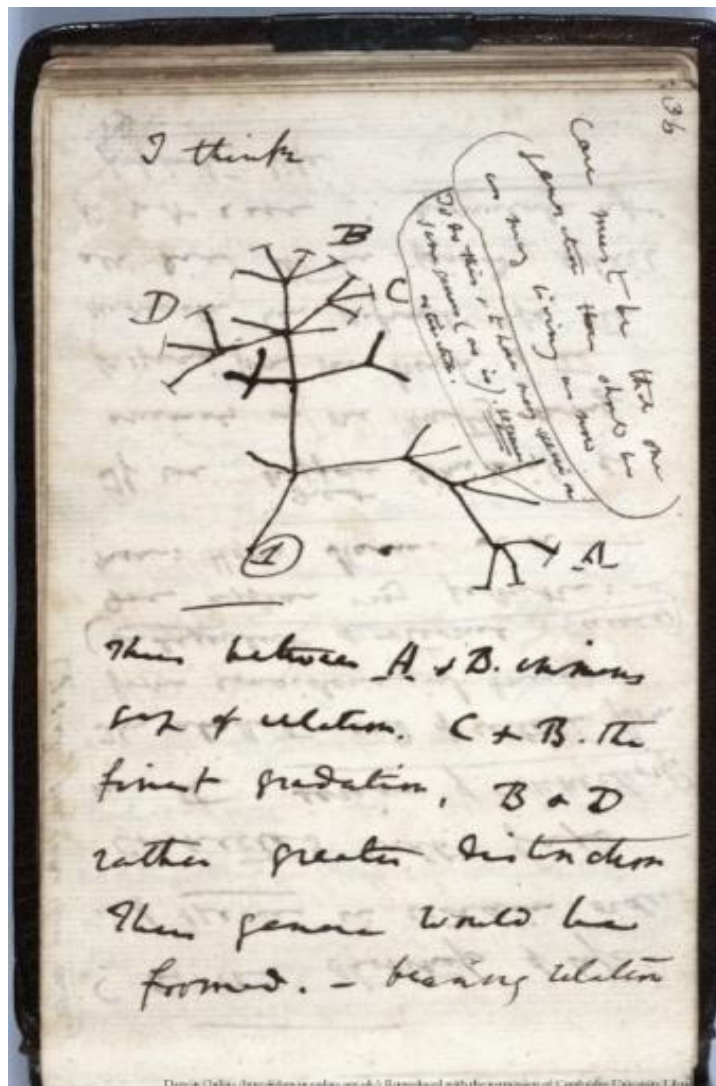 36
I think
Case must be that one
generation then should be
as many living as now
To do this & to have many species in
same genus (as is). requires
extinction.
B
C
D
A
1
Thus between A & B. immens
gap of relation. C + B. the
finest gradation, B & D
rather greater distinction
Thus genera would be
formed. — bearing relation